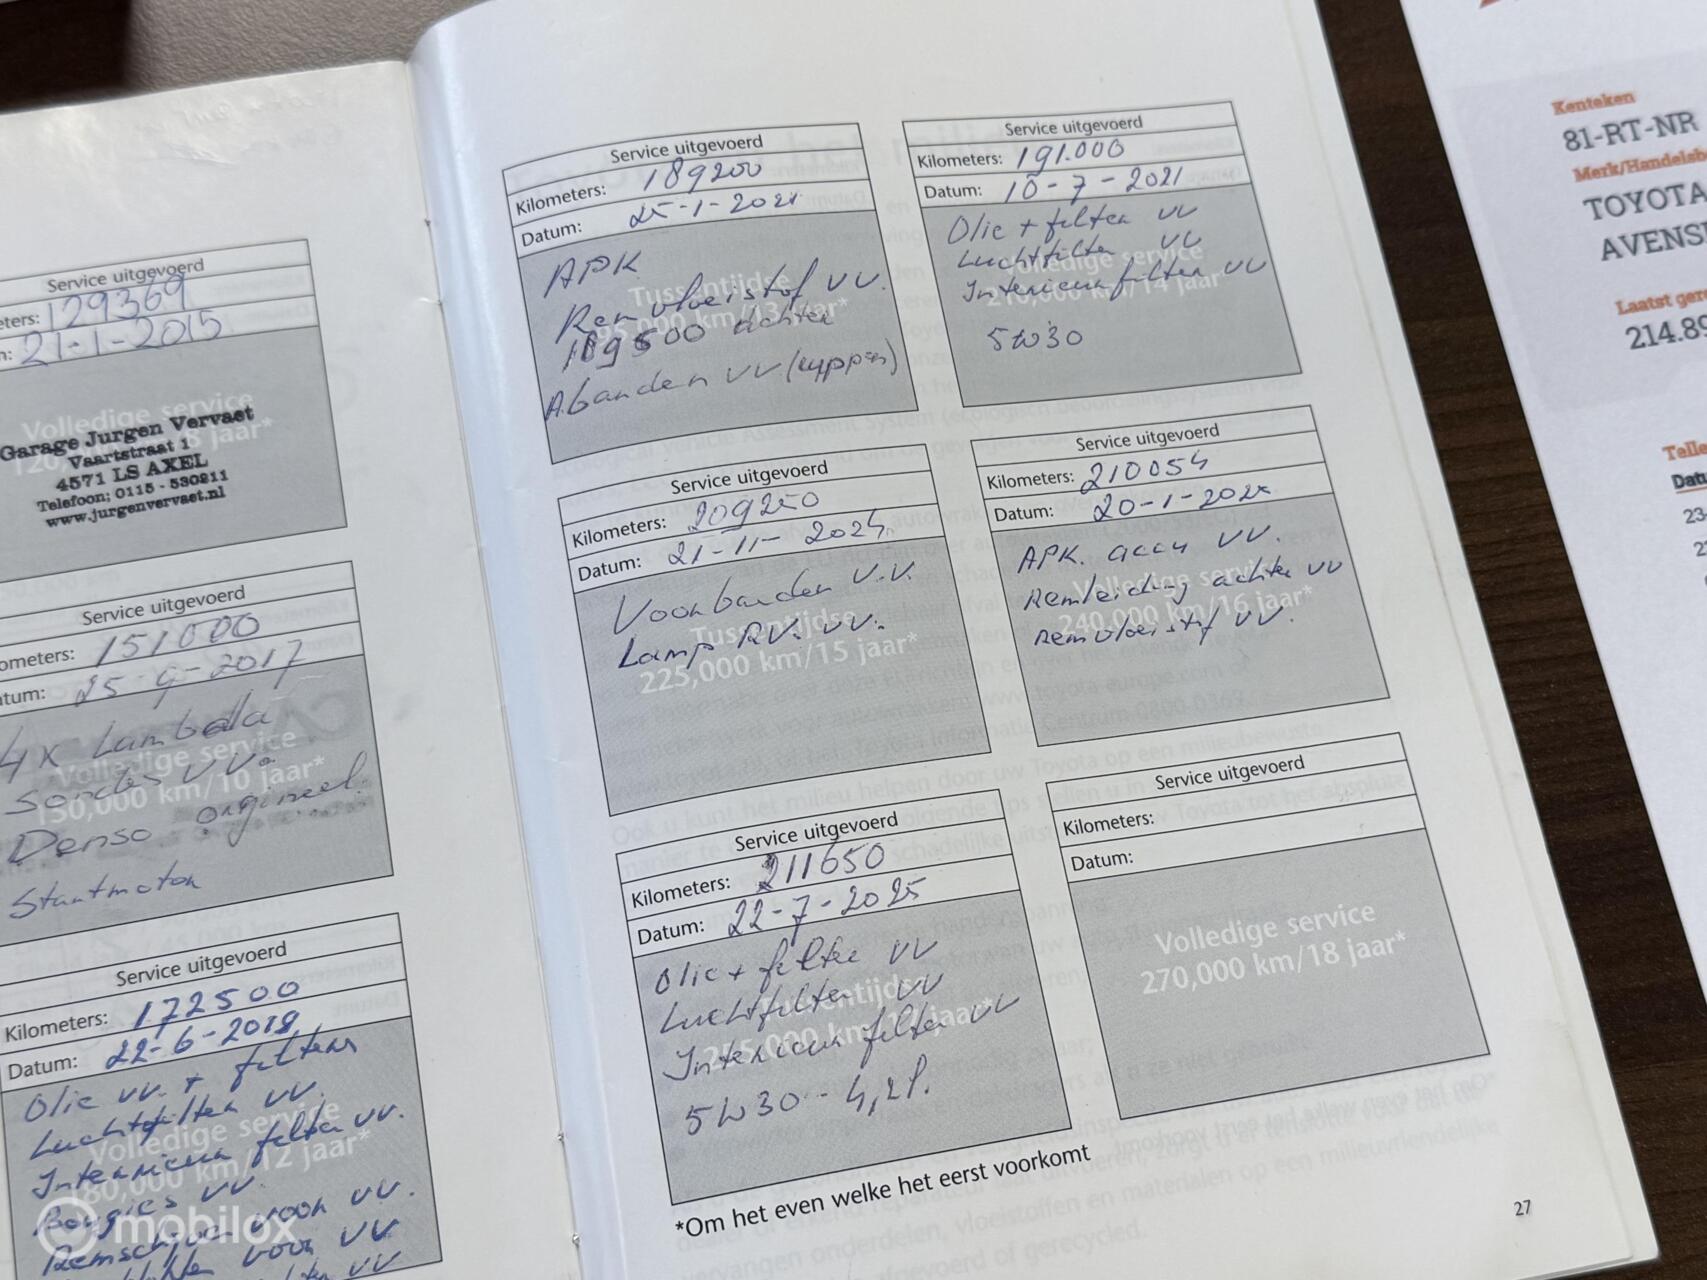 Service uitgevoerd
129369
21-1-2015
Volledige service
Garage Jurgen Vervaet
Vaartstraat 1
4571 LS AXEL
Telefoon: 0115 - 530811
www.jurgenvervaet.nl
Service uitgevoerd
151000
25-9-2017
4x Lambda
Volledige service
150,000 km/10 jaar*
Sondes VV.
Denso origineel
Startmotor
Service uitgevoerd
Kilometers: 172500
Datum: 22-6-2018
Olie vv. + filters
Luchtfilter vv.
Volledige service
Interieur filter vv.
80,000 km/12 jaar*
Bougies vv.
Remschijven voor vv.
voor vv
vv
mobilox
Service uitgevoerd
Kilometers: 189200
Datum: 25-1-2021
APK
Tussentijdse
Remvloeistof vv.
189500 achter
A.banden vv
Service uitgevoerd
Kilometers: 191.000
Datum: 10-7-2021
Olie + filter vv
Luchtfilter vv
Volledige service
210,000 km/14 jaar*
Interieurfilter vv
5W30
Service uitgevoerd
Kilometers: 209250
Datum: 21-11-2024
Voorbanden v.v.
Tussentijdse
Lamp RV. vv.
225,000 km/15 jaar*
Service uitgevoerd
Kilometers: 210054
Datum: 20-1-2025
APK. accu vv.
Volledige service
Remleiding achter vv
240,000 km/16 jaar*
Remvloeistof vv.
Service uitgevoerd
Kilometers: 211650
Datum: 22-7-2025
Olie + filter vv
Luchtfilter vv
Tussentijdse
Interieur filter vv
5W30 - 4,2l.
Service uitgevoerd
Kilometers:
Datum:
Volledige service
270,000 km/18 jaar*
*Om het even welke het eerst voorkomt
27
Kenteken
81-RT-NR
TOYOTA